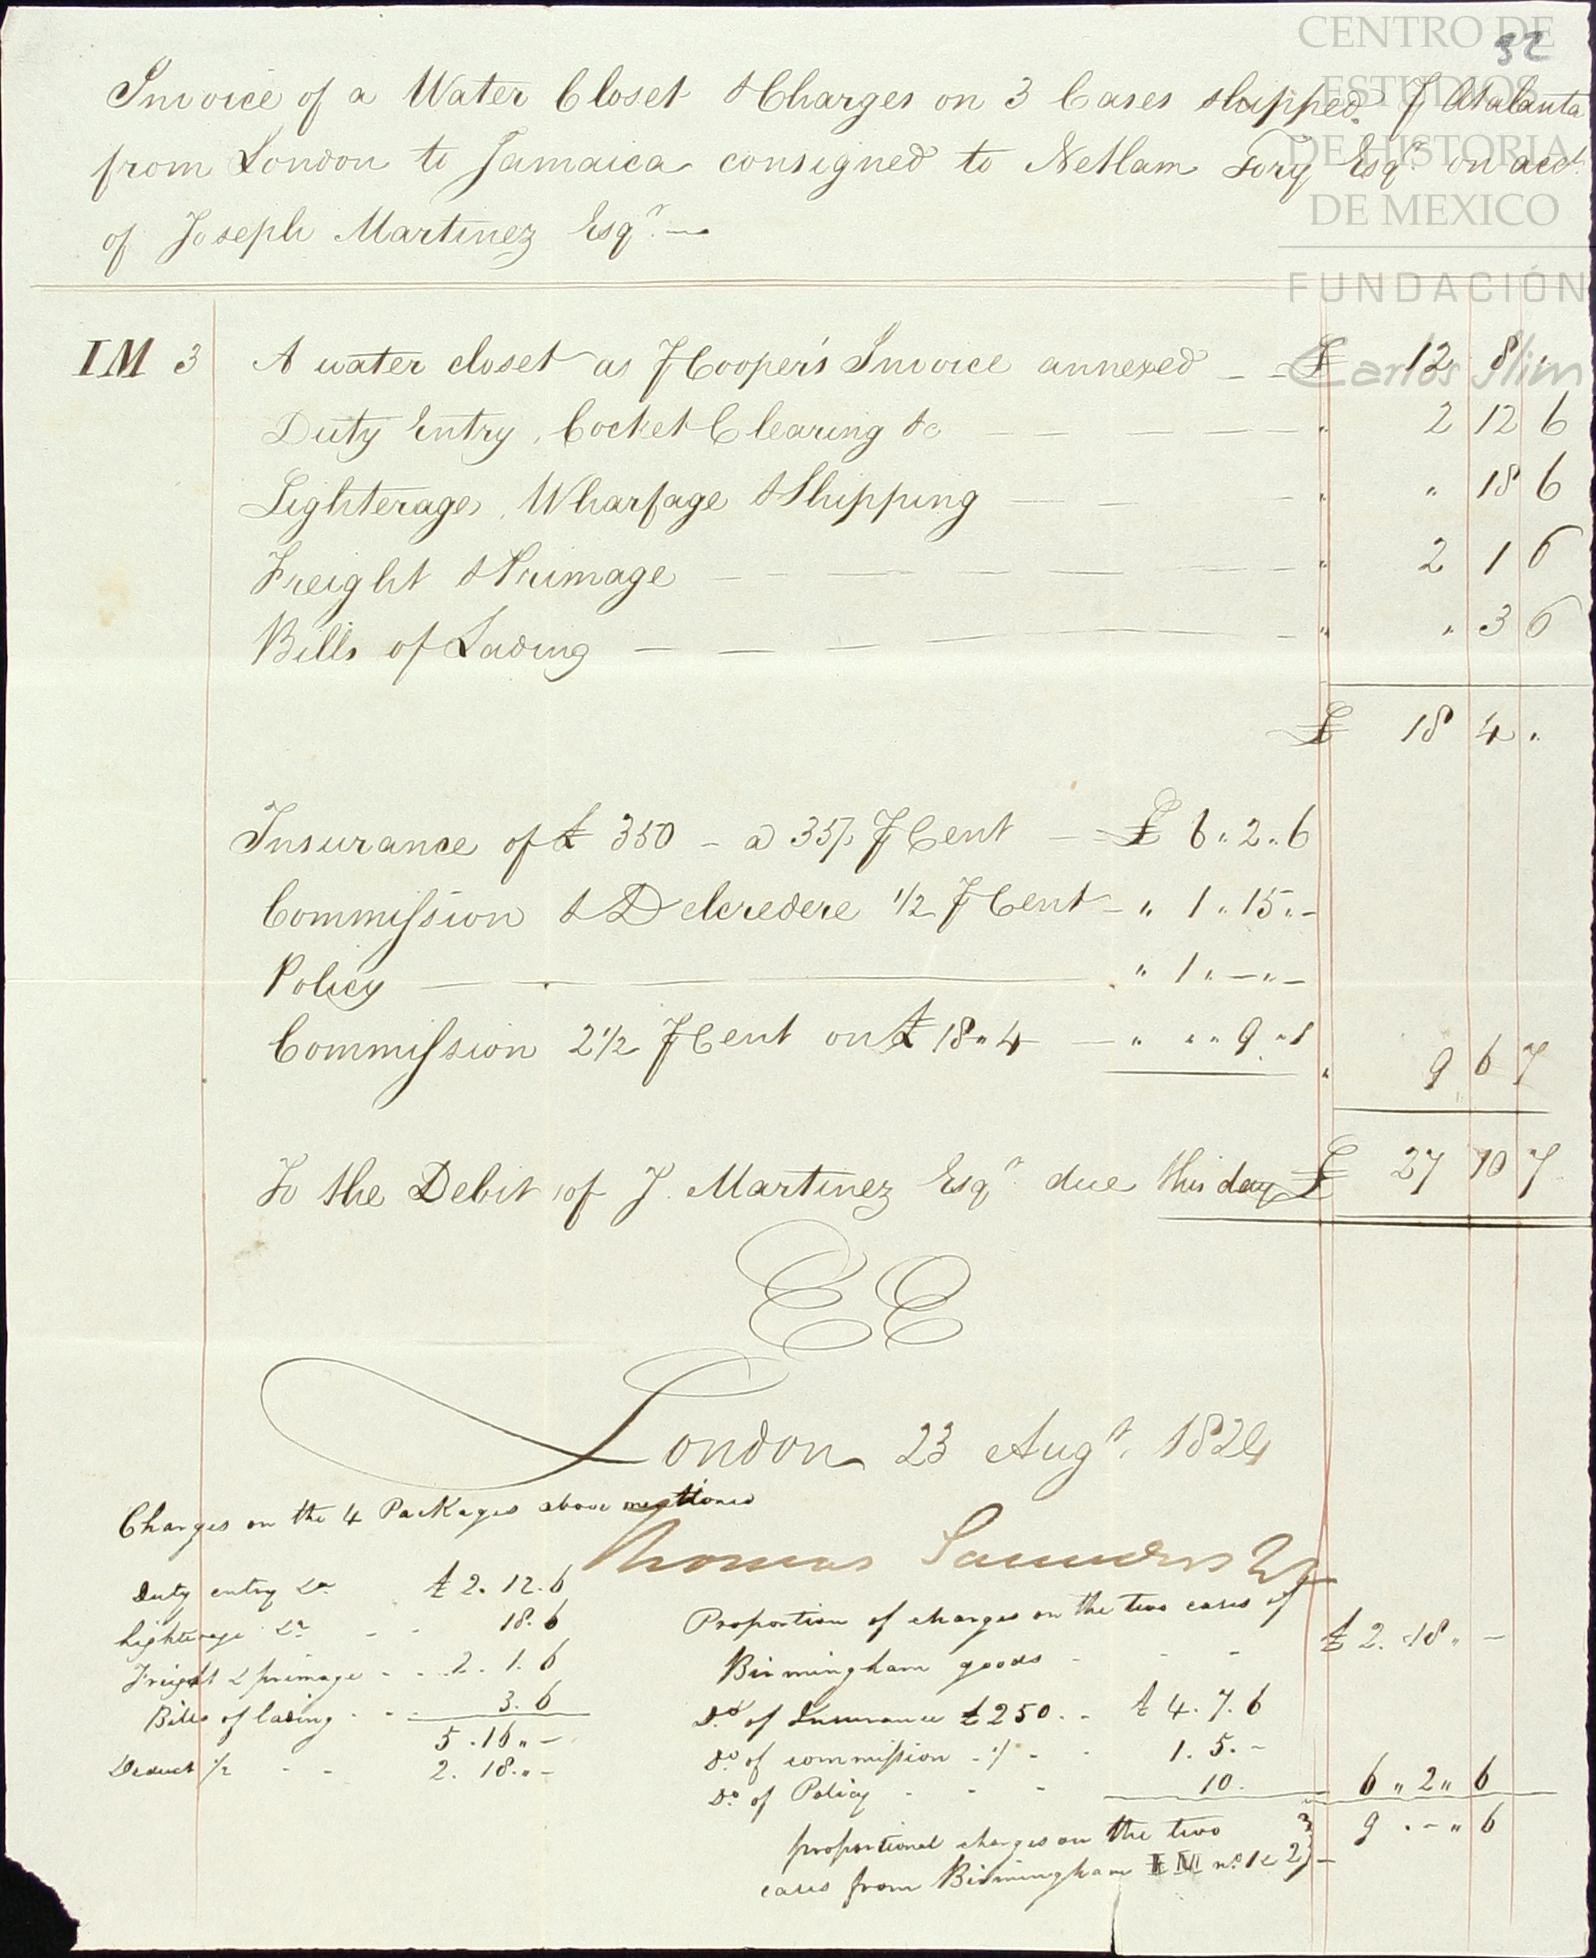 32
CENTRO DE
ESTUDIOS
DE HISTORIA
DE MEXICO
FUNDACIÓN
Carlos Slim
Invoice of a Water Closet & Charges on 3 Cases shipped ⅌ Atalanta
from London to Jamaica consigned to Netlam Tory Esqr. on acct.
of Joseph Martinez Esqr. —
IM 3 A water closet as ⅌ Cooper's Invoice annexed — £ 12 8 "
Duty Entry, Cocket Clearing &c — " 2 12 6
Lighterage, Wharfage & Shipping — " " 18 6
Freight & Primage — " 2 1 6
Bills of Lading — " " 3 6
£ 18 4 "
Insurance of £ 350 - a 35/ ⅌ Cent — £ 6 " 2 " 6
Commission & Delcredere 1/2 ⅌ Cent — " 1 " 15 " -
Policy — " 1 " - " -
Commission 2 1/2 ⅌ Cent on £ 18 " 4 — " " " 9 " 1
" 9 6 7
To the Debit of J. Martinez Esqr. due this day £ 27 10 7
EE
London 23 Augt. 1824
Thomas Saunders
Charges on the 4 Packages above mentioned
Duty entry &c £ 2. 12. 6
lighterage &c - - 18. 6
Freight & primage - - 2. 1. 6
Bills of lading - - 3. 6
5. 16 " -
Deduct 1/2 - - 2. 18. " -
Proportion of charges on the two cases of
Birmingham goods - - - £ 2. 18 " -
Do. of Insurance £ 250 - - £ 4. 7. 6
Do. of commission - - - 1. 5. -
Do. of Policy - - - 10. 6 " 2 " 6
proportional charges on the two 9 . - " 6
cases from Birmingham IM no. 1 & 2 -